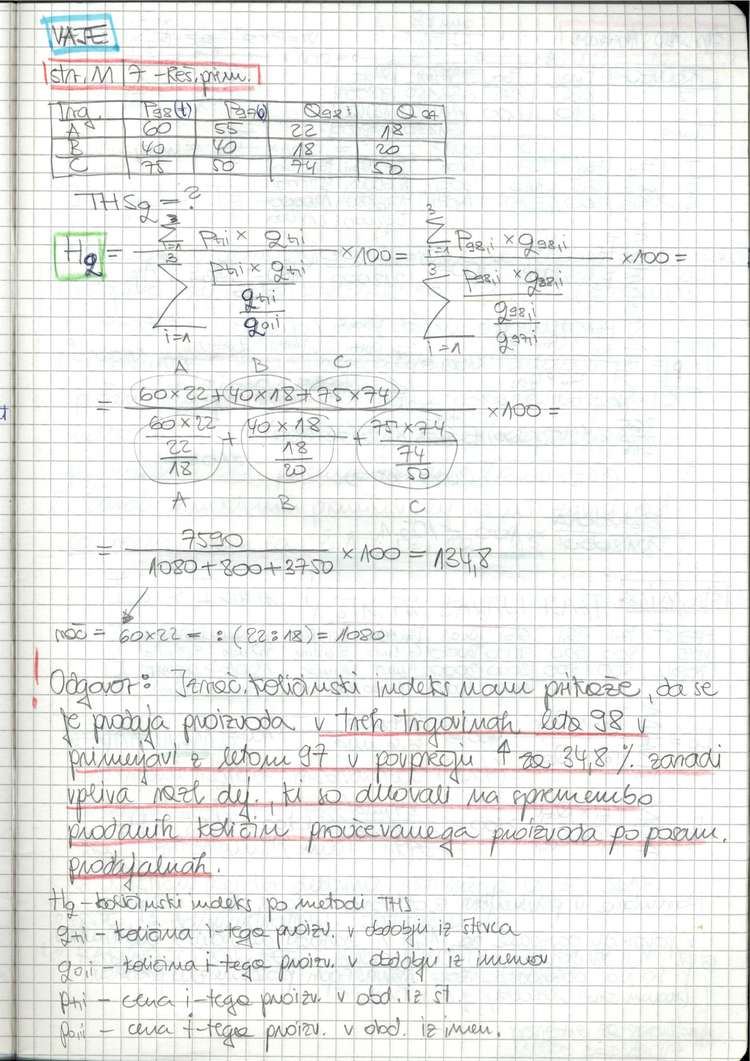 VAJE
str. M 7 - Reš. prim.
Trg. P98(t) P97(0) Q98i Q97
A 60 55 22 18
B 40 40 18 20
C 75 50 74 50
THSq = ?
Hq = 3∑i=1 pt,i × qt,i / 3∑i=1 (pt,i × qt,i / (qt,i / q0,i)) × 100 = 3∑i=1 p98,i × q98,i / 3∑i=1 (p98,i × q98,i / (q98,i / q97,i)) × 100 =
A B C
= 60×22 + 40×18 + 75×74 / (60×22 / (22/18) + 40×18 / (18/20) + 75×74 / (74/50)) × 100 =
A B C
= 7590 / 1080+800+3750 × 100 = 134,8
= 60×22 = : (22:18) = 1080
! Odgovor: Izrač. količinski indeks nam prikaže, da se
je prodaja proizvoda v treh trgovinah leta 98 v
primerjavi z letom 97 v povprečju ↑ za 34,8 % zaradi
vpliva razl. dej., ki so delovali na spremembo
prodanih količin proučevanega proizvoda po posam.
prodajalnah.
Hq - količinski indeks po metodi THS
qt,i - količina i-tega proizv. v obdobju iz števca
q0,i - količina i-tega proizv. v obdobju iz imenov
pt,i - cena i-tega proizv. v obd. iz št
p0,i - cena i-tega proizv. v obd. iz imen.